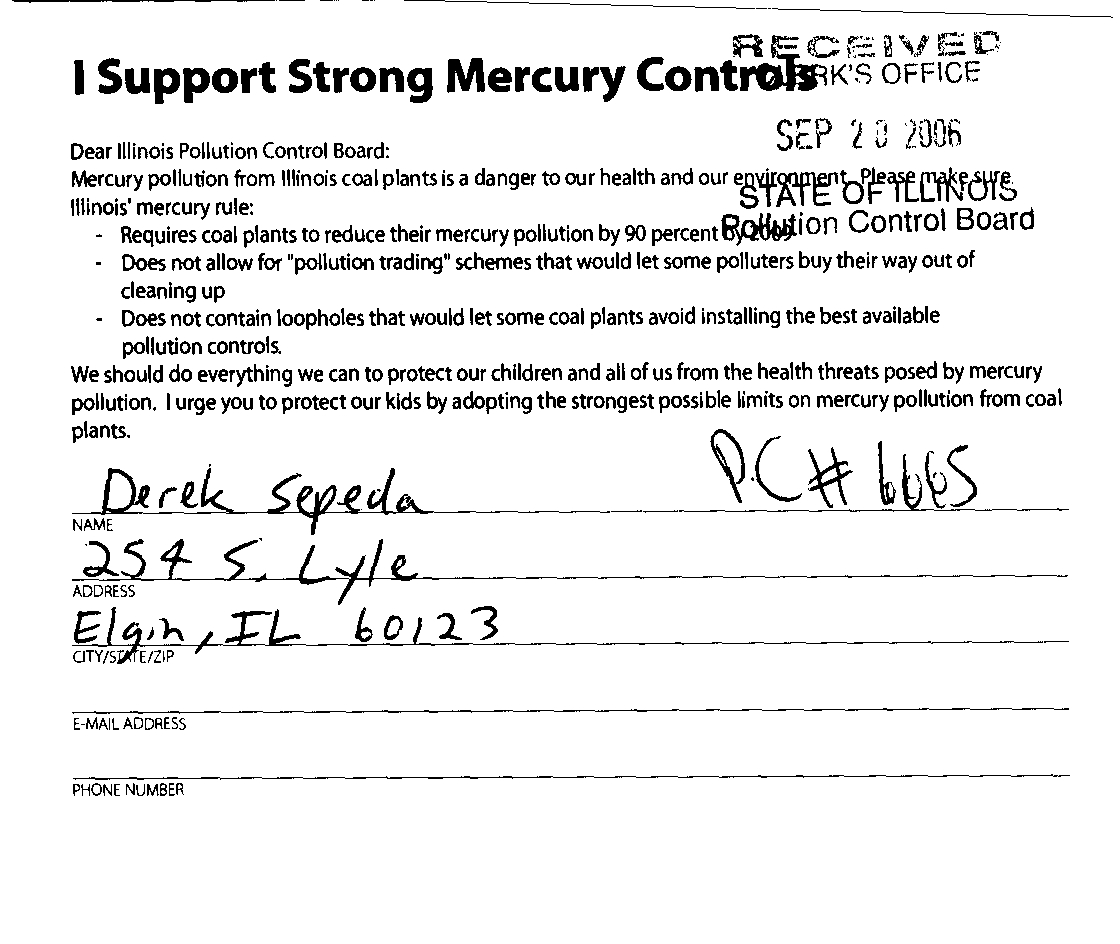 RECEIVED
I Support Strong Mercury Controls
CLERK'S OFFICE
SEP 20 2006
Dear Illinois Pollution Control Board:
Mercury pollution from Illinois coal plants is a danger to our health and our environment. Please make sure
STATE OF ILLINOIS
Illinois' mercury rule:
Pollution Control Board
- Requires coal plants to reduce their mercury pollution by 90 percent by 2009
- Does not allow for "pollution trading" schemes that would let some polluters buy their way out of
cleaning up
- Does not contain loopholes that would let some coal plants avoid installing the best available
pollution controls.
We should do everything we can to protect our children and all of us from the health threats posed by mercury
pollution. I urge you to protect our kids by adopting the strongest possible limits on mercury pollution from coal
plants.
Derek Sepeda P.C # 6665
NAME
254 S. Lyle
ADDRESS
Elgin, IL 60123
CITY/STATE/ZIP
E-MAIL ADDRESS
PHONE NUMBER